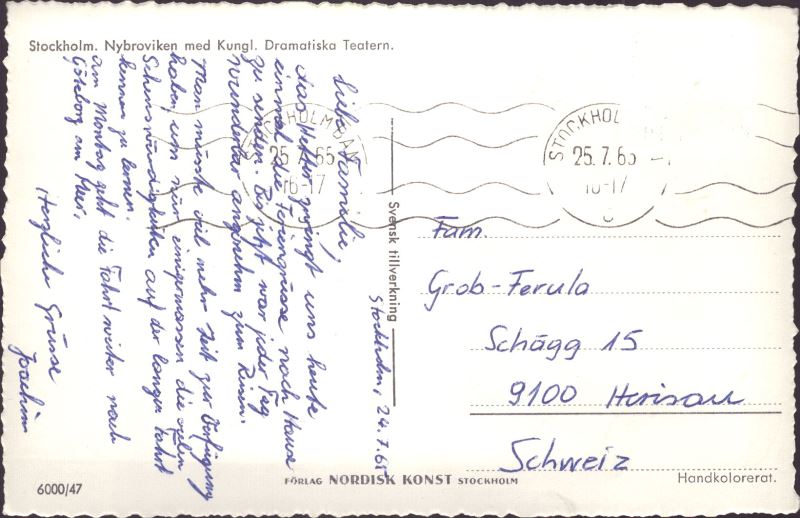 Stockholm. Nybroviken med Kungl. Dramatiska Teatern.
Stockholm, 24.7.65
Liebe Familie,
das Wetter zwingt uns heute
einmal die Feriengrüsse nach Hause
zu senden. Bis jetzt war jeder Tag
wunderbar angenehm zum Reisen.
Man müsste viel mehr Zeit zur Verfügung
haben um nur einigermassen die vielen
Sehenswürdigkeiten auf der langen Fahrt
kennen zu lernen.
Am Montag geht die Fahrt weiter nach
Göteborg am Meer.
Herzliche Grüsse
Joachim
STOCKHOLM BAN
25.7.65
16-17
STOCKHOL
25.7.65
16-17
Svensk tillverkning
Fam.
Grob-Ferula
Schägg 15
9100 Herisau
Schweiz
6000/47
FÖRLAG NORDISK KONST STOCKHOLM
Handkolorerat.